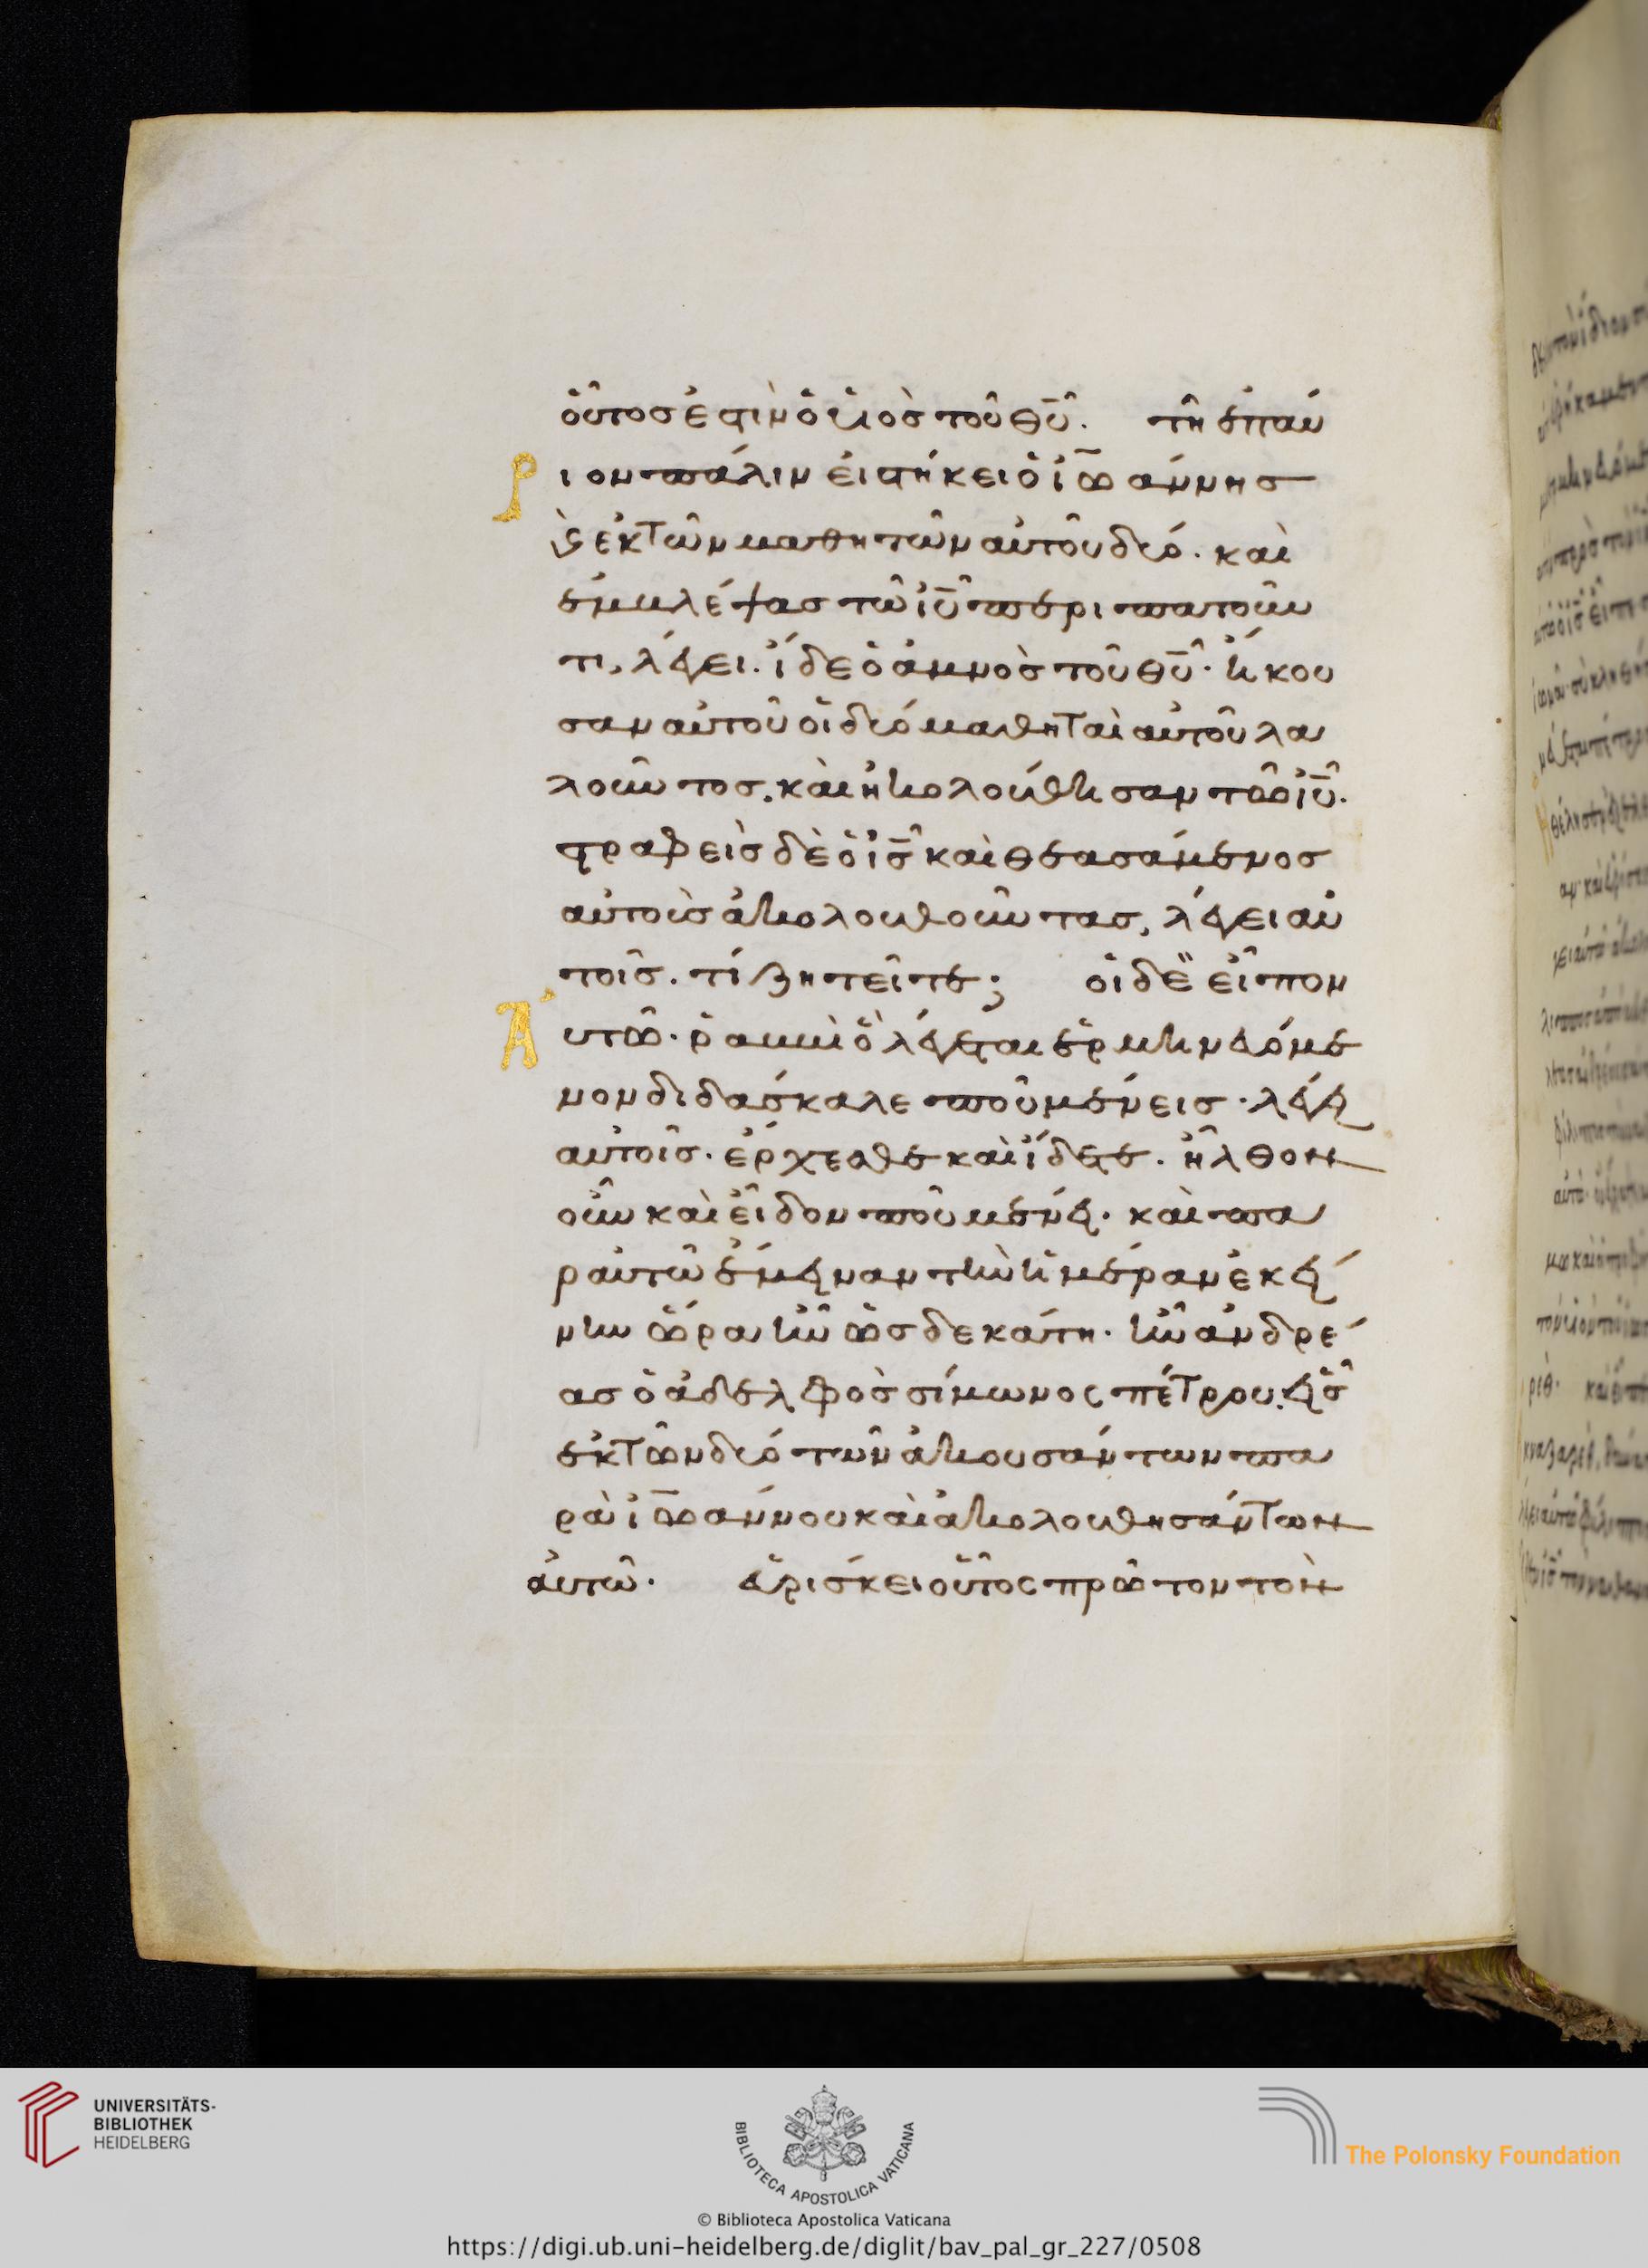 οὗτοσ ἐστὶν ὁ υἱὸσ τοῦ θῦ. τῆ ἐπαύ
ριον πάλιν εἱστήκει ὁ ἰωάννησ
ϗ ἐκ τῶν μαθητῶν αὐτοῦ δύο. καὶ
ἐμβλέψασ τῶ ἰῦ περιπατοῦν
τι, λέγει. ἴδε ὁ ἀμνὸσ τοῦ θῦ. ἤκου
σαν αὐτοῦ οἱ δύο μαθηταὶ αὐτοῦ λα
λοῦντοσ. καὶ ἠκολούθησαν τῶ ἰῦ.
στραφεὶσ δὲ ὁ ἰσ καὶ θεασάμενοσ
αὐτοὺσ ἀκολουθοῦντασ, λέγει αὐ
τοῖσ. τί ζητεῖτε; οἱ δὲ εἶπον
Αὐτῶ. ῥαββὶ ὃ λέγεται ἑρμηνευόμε
νον διδάσκαλε ποῦ μένεισ. λέγει
αὐτοῖσ. ἔρχεσθε καὶ ἴδετε. ἦλθον
οὖν καὶ εἶδον ποῦ μένει. καὶ πα
ρ αὐτῶ ἔμειναν τὴν ἡμέραν ἐκεί
νην ὥρα ἦν ὡσ δεκάτη. ἦν ἀνδρέ
ασ ὁ ἀδελφὸσ σίμωνοσ πέτρου. εἷσ
ἐκ τῶν δύο τῶν ἀκουσάντων πα
ρὰ ἰωάννου καὶ ἀκολουθησάντων
αὐτῶ. εὑρίσκει οὗτοσ πρῶτον τὸν
UNIVERSITÄTS-
BIBLIOTHEK
HEIDELBERG
BIBLIOTECA APOSTOLICA VATICANA
The Polonsky Foundation
© Biblioteca Apostolica Vaticana
https://digi.ub.uni-heidelberg.de/diglit/bav_pal_gr_227/0508